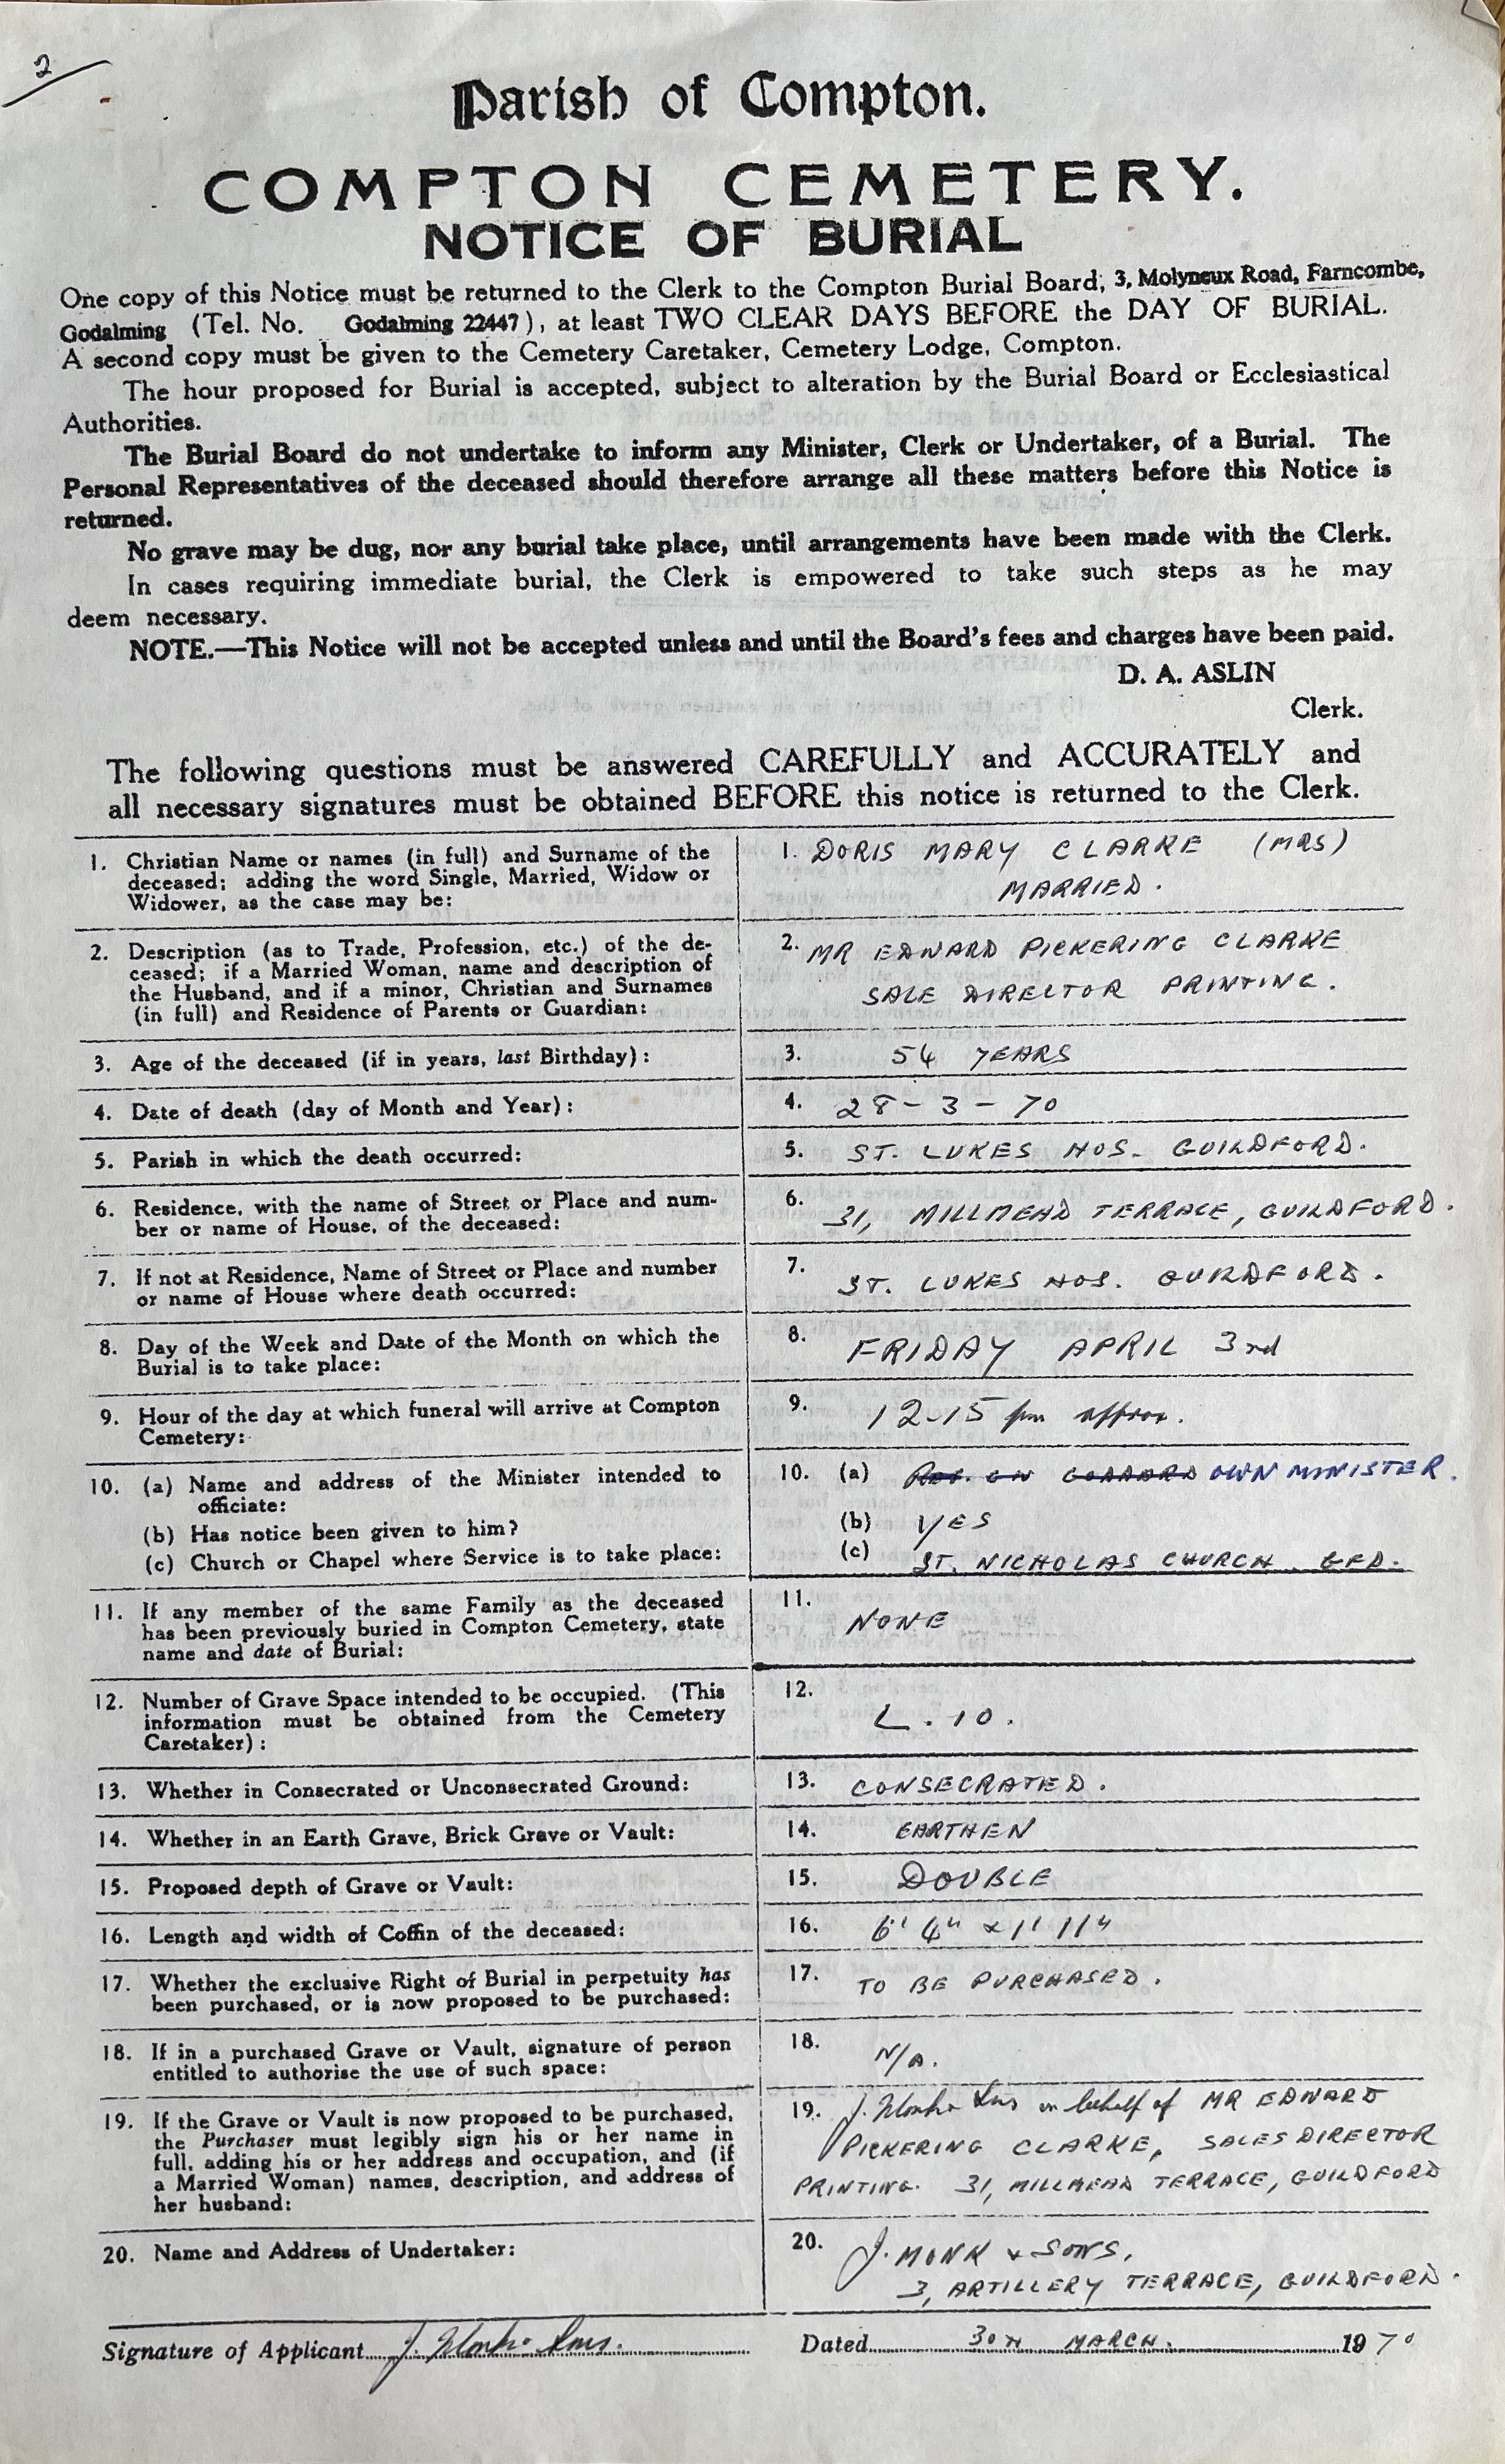 2
Parish of Compton.
COMPTON CEMETERY.
NOTICE OF BURIAL
One copy of this Notice must be returned to the Clerk to the Compton Burial Board, 3, Molyneux Road, Farncombe,
Godalming (Tel. No. Godalming 22447), at least TWO CLEAR DAYS BEFORE the DAY OF BURIAL.
A second copy must be given to the Cemetery Caretaker, Cemetery Lodge, Compton.
The hour proposed for Burial is accepted, subject to alteration by the Burial Board or Ecclesiastical
Authorities.
The Burial Board do not undertake to inform any Minister, Clerk or Undertaker, of a Burial. The
Personal Representatives of the deceased should therefore arrange all these matters before this Notice is
returned.
No grave may be dug, nor any burial take place, until arrangements have been made with the Clerk.
In cases requiring immediate burial, the Clerk is empowered to take such steps as he may
deem necessary.
NOTE.—This Notice will not be accepted unless and until the Board's fees and charges have been paid.
D. A. ASLIN
Clerk.
The following questions must be answered CAREFULLY and ACCURATELY and
all necessary signatures must be obtained BEFORE this notice is returned to the Clerk.
1. Christian Name or names (in full) and Surname of the
deceased; adding the word Single, Married, Widow or
Widower, as the case may be:
1. DORIS MARY CLARKE (MRS)
MARRIED.
2. Description (as to Trade, Profession, etc.) of the de-
ceased; if a Married Woman, name and description of
the Husband, and if a minor, Christian and Surnames
(in full) and Residence of Parents or Guardian:
2. MR EDWARD PICKERING CLARKE
SALE DIRECTOR PRINTING.
3. Age of the deceased (if in years, last Birthday):
3. 54 YEARS
4. Date of death (day of Month and Year):
4. 28-3-70
5. Parish in which the death occurred:
5. ST. LUKES HOS. GUILDFORD.
6. Residence, with the name of Street or Place and num-
ber or name of House, of the deceased:
6. 31, MILLMEAD TERRACE, GUILDFORD.
7. If not at Residence, Name of Street or Place and number
or name of House where death occurred:
7. ST. LUKES HOS. GUILDFORD.
8. Day of the Week and Date of the Month on which the
Burial is to take place:
8. FRIDAY APRIL 3rd
9. Hour of the day at which funeral will arrive at Compton
Cemetery:
9. 12-15 pm approx.
10. (a) Name and address of the Minister intended to
officiate:
(b) Has notice been given to him?
(c) Church or Chapel where Service is to take place:
10. (a) OWN MINISTER.
(b) YES
(c) ST. NICHOLAS CHURCH. GFD.
11. If any member of the same Family as the deceased
has been previously buried in Compton Cemetery, state
name and date of Burial:
11. NONE
12. Number of Grave Space intended to be occupied. (This
information must be obtained from the Cemetery
Caretaker):
12. L.10.
13. Whether in Consecrated or Unconsecrated Ground:
13. CONSECRATED.
14. Whether in an Earth Grave, Brick Grave or Vault:
14. EARTHEN
15. Proposed depth of Grave or Vault:
15. DOUBLE
16. Length and width of Coffin of the deceased:
16. 6' 4" x 1' 11"
17. Whether the exclusive Right of Burial in perpetuity has
been purchased, or is now proposed to be purchased:
17. TO BE PURCHASED.
18. If in a purchased Grave or Vault, signature of person
entitled to authorise the use of such space:
18. N/A.
19. If the Grave or Vault is now proposed to be purchased,
the Purchaser must legibly sign his or her name in
full, adding his or her address and occupation, and (if
a Married Woman) names, description, and address of
her husband:
19. J. Monk & Sons on behalf of MR EDWARD
PICKERING CLARKE, SALES DIRECTOR
PRINTING. 31, MILLMEAD TERRACE, GUILDFORD
20. Name and Address of Undertaker:
20. J. MONK & SONS,
3, ARTILLERY TERRACE, GUILDFORD.
Signature of Applicant J. Monk & Sons.
Dated 30TH MARCH. 1970